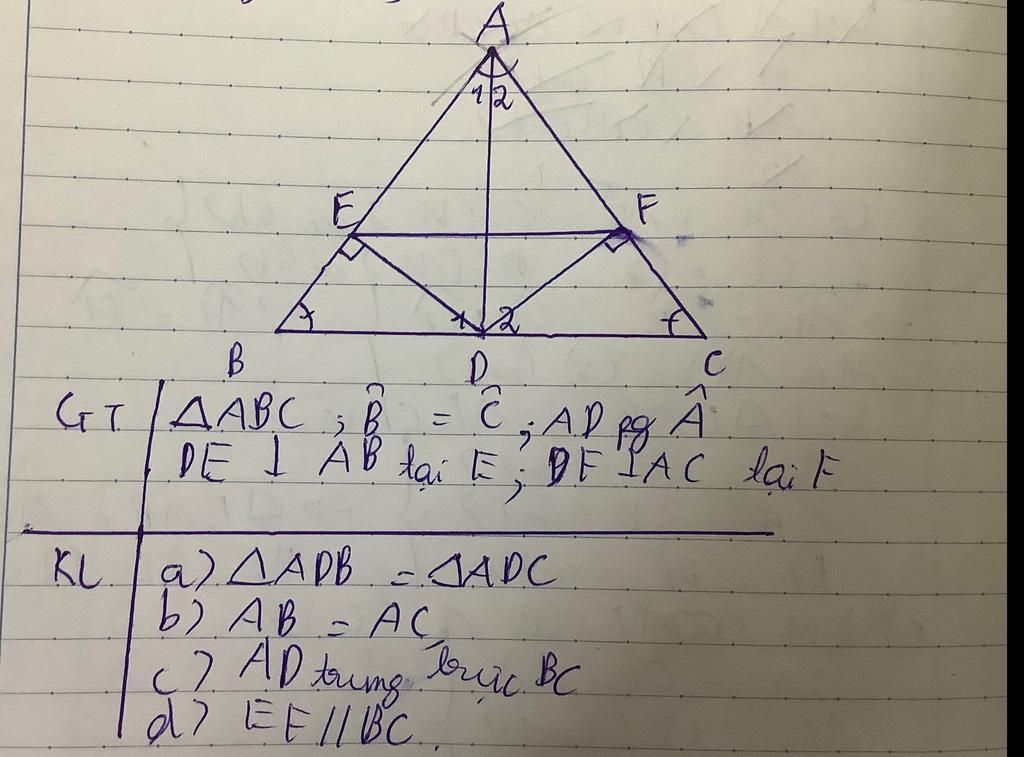 A
1 2
E F
1 2
B D C
GT ΔABC ; B̂ = Ĉ ; AD pg Â
DE ⊥ AB tại E ; DF ⊥ AC tại F
KL a) ΔADB = ΔADC
b) AB = AC
c) AD trung trực BC
d) EF // BC.